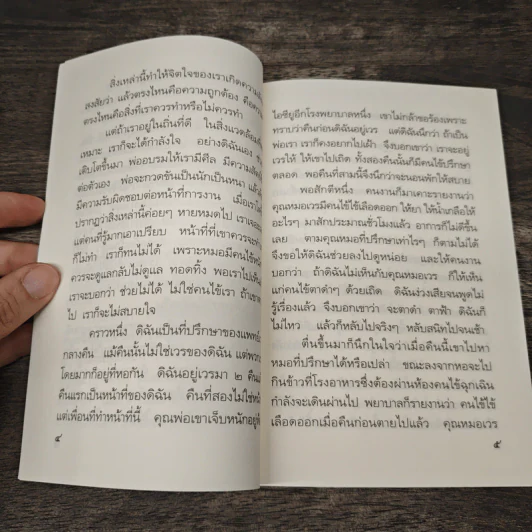 สิ่งเหล่านี้ทำให้จิตใจของเราเกิดความ
สงสัยว่า แล้วตรงไหนคือความถูกต้อง คือ
ตรงไหนคือสิ่งที่เราควรทำหรือไม่ควรทำ
แต่ถ้าเราอยู่ในถิ่นที่ดี ในสิ่งแวดล้อม
เหมาะ เราก็จะได้กำลังใจ อย่างดิฉันเอง
เติบโตขึ้นมา พ่ออบรมให้เรามีศีล มีความ
ต่อตัวเอง พ่อจะกวดขันเป็นนักเป็นหนา
มีความรับผิดชอบต่อหน้าที่การงาน เมื่อเรา
ปรากฏว่าสิ่งเหล่านี้ค่อยๆ หายหมดไป เรา
แต่คนที่รู้มากเอาเปรียบ หน้าที่ที่เขาควรจะ
ก็ไม่ทำ เราก็ทนไม่ได้ เพราะหมอมีคนไข้
ควรจะดูแลกลับไม่ดูแล ทอดทิ้ง พอเราไปเห็น
เราจะบอกว่า ช่วยไม่ได้ ไม่ใช่คนไข้เรา ถ้าเรา
ไป เราก็จะไม่สบายใจ
คราวหนึ่ง ดิฉันเป็นที่ปรึกษาของแพทย์
กลางคืน แม้คืนนั้นไม่ใช่เวรของดิฉัน แต่พวก
โดยมากก็อยู่ที่หอกัน ดิฉันอยู่เวรมา ๒ คืน
คืนแรกเป็นหน้าที่ของดิฉัน คืนที่สองไม่ใช่
แต่เพื่อนที่ทำหน้าที่นี้ คุณพ่อเขาเจ็บหนักอยู่
๔
ไอซียูอีกโรงพยาบาลหนึ่ง เขาไม่กล้าขอร้องเพราะ
ทราบว่าคืนก่อนดิฉันอยู่เวร แต่ดิฉันนึกว่า ถ้าเป็น
พ่อเรา เราก็คงอยากไปเฝ้า จึงบอกเขาว่า เราจะอยู่
เวรให้ ให้เขาไปเถิด ทั้งสองคืนนั้นก็มีคนไข้ปรึกษา
ตลอด พอคืนที่สามนี้จึงนึกว่าจะนอนพักให้สบาย
พอสักตีหนึ่ง คนงานก็มาเคาะรายงานว่า
คุณหมอเวรมีคนไข้ไข้เลือดออก ให้ยา ให้น้ำเกลือให้
อะไรๆ มาสักประมาณชั่วโมงแล้ว อาการก็ไม่ดีขึ้น
เลย ตามคุณหมอที่ปรึกษาเท่าไรๆ ก็ตามไม่ได้
จึงขอให้ดิฉันช่วยลงไปดูหน่อย และให้คนงาน
บอกว่า ถ้าดิฉันไม่เห็นกับคุณหมอเวร ก็ให้เห็น
แก่คนไข้ตาดำๆ ด้วยเถิด ดิฉันง่วงเสียจนพูดไม่
รู้เรื่องแล้ว จึงบอกเขาว่า จะตาดำ ตาฟ้า ดิฉันก็
ไม่ไหว แล้วก็หลับไปจริงๆ หลับสนิทไปจนเช้า
ตื่นขึ้นมาก็นึกในใจว่าเมื่อคืนนี้เขาไปหา
หมอที่ปรึกษาได้หรือเปล่า ขณะลงจากหอจะไป
กินข้าวที่โรงอาหารซึ่งต้องผ่านห้องคนไข้ฉุกเฉิน
กำลังจะเดินผ่านไป พยาบาลก็รายงานว่า คนไข้ไข้
เลือดออกเมื่อคืนก่อนตายไปแล้ว คุณหมอเวร
๕